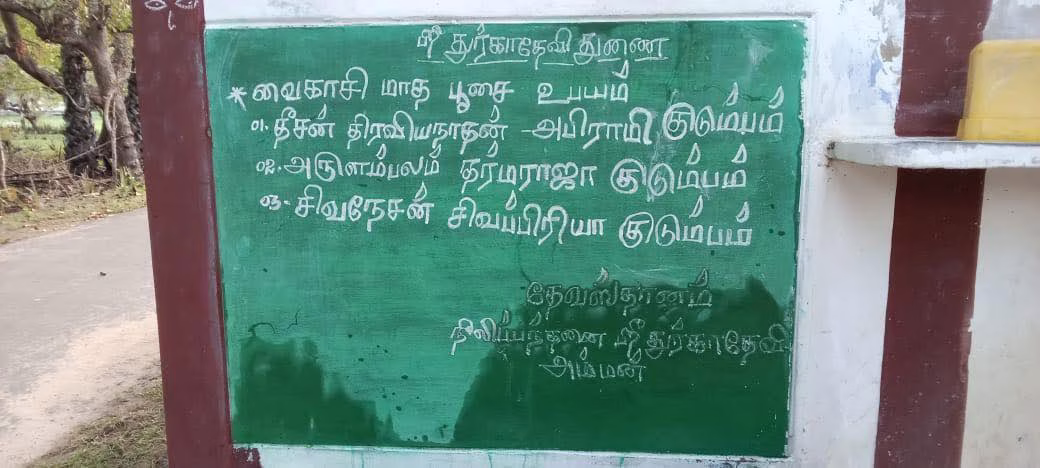 ஸ்ரீ துர்காதேவி துணை
* வைகாசி மாத பூசை உபயம்
01. தீசன் திரவியநாதன் - அபிராமி குடும்பம்
02. அருளம்பலம் தர்மராஜா குடும்பம்
03- சிவநேசன் சிவப்பிரியா குடும்பம்
தேவஸ்தானம்
நீலிப்பந்தனை ஸ்ரீ துர்காதேவி
அம்மன்